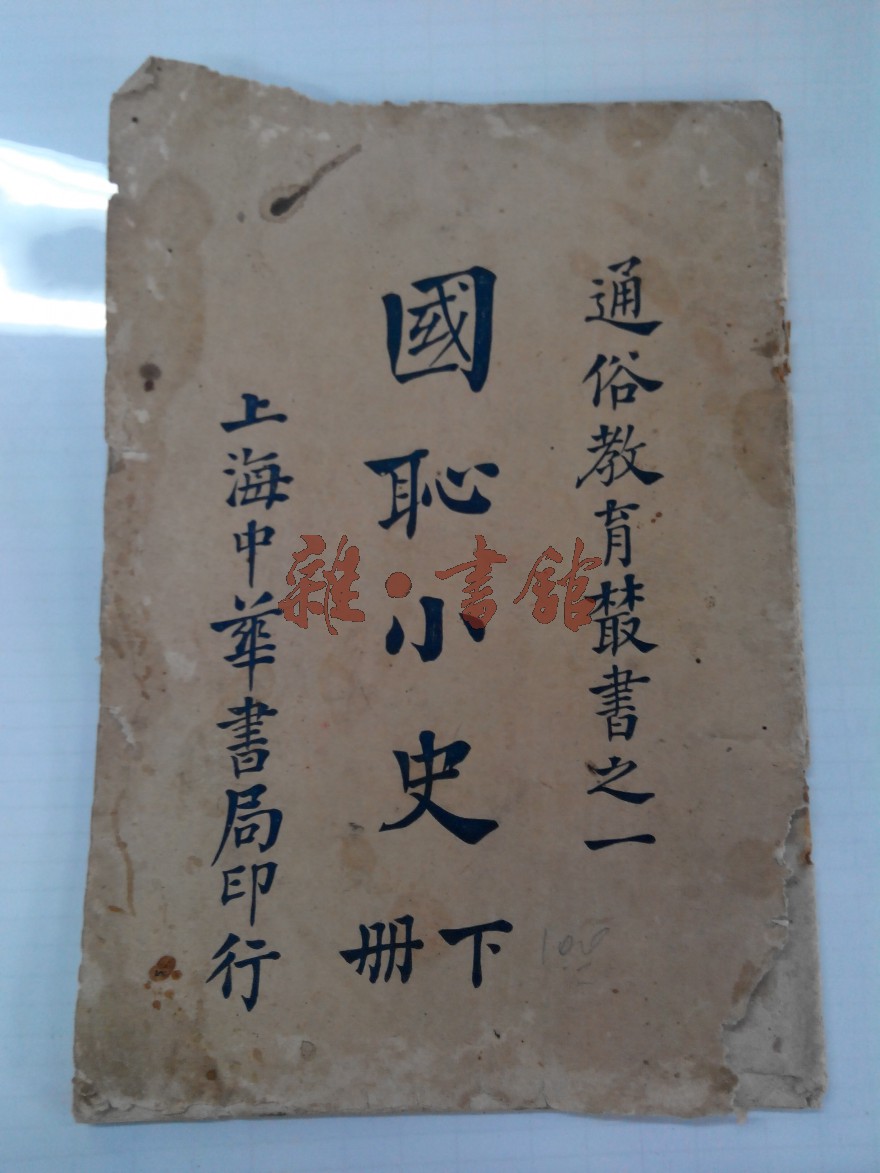 通俗教育叢書之一
國恥小史
下册
上海中華書局印行
雜·書館
100